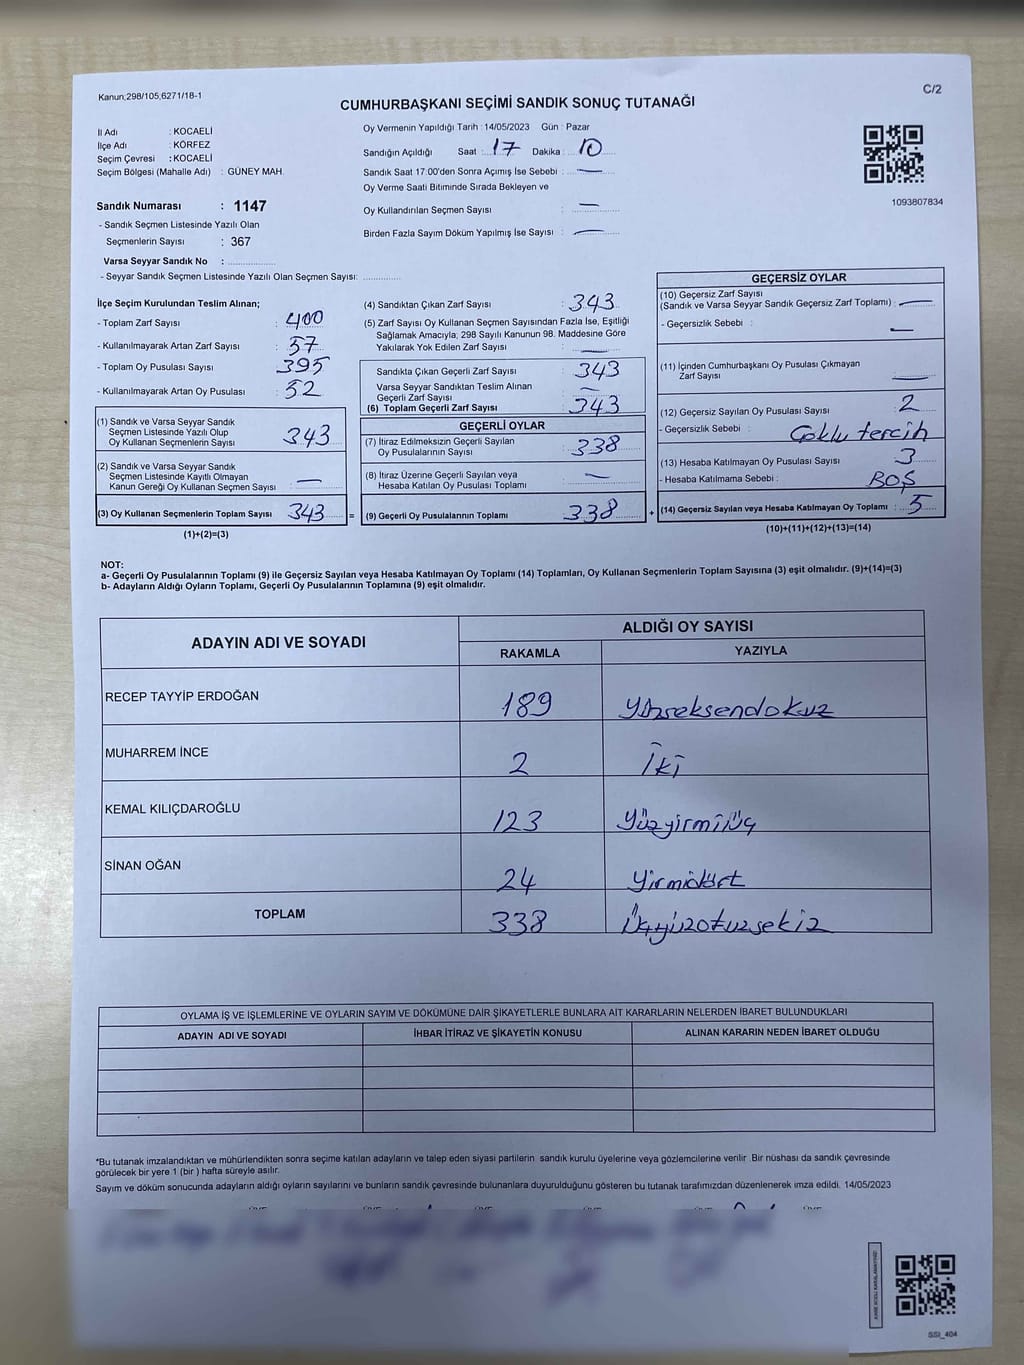 Kanun;298/105,6271/18-1
C/2
CUMHURBAŞKANI SEÇİMİ SANDIK SONUÇ TUTANAĞI
İl Adı : KOCAELİ
İlçe Adı : KÖRFEZ
Seçim Çevresi : KOCAELİ
Seçim Bölgesi (Mahalle Adı) : GÜNEY MAH.
Oy Vermenin Yapıldığı Tarih : 14/05/2023 Gün : Pazar
Sandığın Açıldığı Saat : 17 Dakika : 10
Sandık Saat 17:00'den Sonra Açımış İse Sebebi : —
Oy Verme Saati Bitiminde Sırada Bekleyen ve
Oy Kullandırılan Seçmen Sayısı : —
Birden Fazla Sayım Döküm Yapılmış İse Sayısı : —
1093807834
Sandık Numarası : 1147
- Sandık Seçmen Listesinde Yazılı Olan
Seçmenlerin Sayısı : 367
Varsa Seyyar Sandık No : ................
- Seyyar Sandık Seçmen Listesinde Yazılı Olan Seçmen Sayısı: .............
İlçe Seçim Kurulundan Teslim Alınan;
- Toplam Zarf Sayısı : 400
- Kullanılmayarak Artan Zarf Sayısı : 57
- Toplam Oy Pusulası Sayısı : 395
- Kullanılmayarak Artan Oy Pusulası : 52
(1) Sandık ve Varsa Seyyar Sandık
Seçmen Listesinde Yazılı Olup
Oy Kullanan Seçmenlerin Sayısı : 343
(2) Sandık ve Varsa Seyyar Sandık
Seçmen Listesinde Kayıtlı Olmayan
Kanun Gereği Oy Kullanan Seçmen Sayısı : —
(3) Oy Kullanan Seçmenlerin Toplam Sayısı : 343 =
(1)+(2)=(3)
(4) Sandıktan Çıkan Zarf Sayısı : 343
(5) Zarf Sayısı Oy Kullanan Seçmen Sayısından Fazla İse, Eşitliği
Sağlamak Amacıyla; 298 Sayılı Kanunun 98. Maddesine Göre
Yakılarak Yok Edilen Zarf Sayısı : —
Sandıkta Çıkan Geçerli Zarf Sayısı : 343
Varsa Seyyar Sandıktan Teslim Alınan
Geçerli Zarf Sayısı : —
(6) Toplam Geçerli Zarf Sayısı : 343
GEÇERLİ OYLAR
(7) İtiraz Edilmeksizin Geçerli Sayılan
Oy Pusulalarının Sayısı : 338
(8) İtiraz Üzerine Geçerli Sayılan veya
Hesaba Katılan Oy Pusulası Toplamı : —
(9) Geçerli Oy Pusulalarının Toplamı : 338 +
GEÇERSİZ OYLAR
(10) Geçersiz Zarf Sayısı
(Sandık ve Varsa Seyyar Sandık Geçersiz Zarf Toplamı) : —
- Geçersizlik Sebebi : —
(11) İçinden Cumhurbaşkanı Oy Pusulası Çıkmayan
Zarf Sayısı : —
(12) Geçersiz Sayılan Oy Pusulası Sayısı : 2
- Geçersizlik Sebebi : Çoklu tercih
(13) Hesaba Katılmayan Oy Pusulası Sayısı : 3
- Hesaba Katılmama Sebebi : BOŞ
(14) Geçersiz Sayılan veya Hesaba Katılmayan Oy Toplamı : 5
(10)+(11)+(12)+(13)=(14)
NOT:
a- Geçerli Oy Pusulalarının Toplamı (9) ile Geçersiz Sayılan veya Hesaba Katılmayan Oy Toplamı (14) Toplamları, Oy Kullanan Seçmenlerin Toplam Sayısına (3) eşit olmalıdır. (9)+(14)=(3)
b- Adayların Aldığı Oyların Toplamı, Geçerli Oy Pusulalarının Toplamına (9) eşit olmalıdır.
ADAYIN ADI VE SOYADI ALDIĞI OY SAYISI
RAKAMLA YAZIYLA
RECEP TAYYİP ERDOĞAN 189 Yüzseksendokuz
MUHARREM İNCE 2 İki
KEMAL KILIÇDAROĞLU 123 Yüzyirmiüç
SİNAN OĞAN 24 Yirmidört
TOPLAM 338 Üçyüzotuzsekiz
OYLAMA İŞ VE İŞLEMLERİNE VE OYLARIN SAYIM VE DÖKÜMÜNE DAİR ŞİKAYETLERLE BUNLARA AİT KARARLARIN NELERDEN İBARET BULUNDUKLARI
ADAYIN ADI VE SOYADI İHBAR İTİRAZ VE ŞİKAYETİN KONUSU ALINAN KARARIN NEDEN İBARET OLDUĞU
*Bu tutanak imzalandıktan ve mühürlendikten sonra seçime katılan adayların ve talep eden siyasi partilerin sandık kurulu üyelerine veya gözlemcilerine verilir .Bir nüshası da sandık çevresinde
görülecek bir yere 1 (bir ) hafta süreyle asılır.
Sayım ve döküm sonucunda adayların aldığı oyların sayılarını ve bunların sandık çevresinde bulunanlara duyurulduğunu gösteren bu tutanak tarafımızdan düzenlenerek imza edildi. 14/05/2023
SSI_404